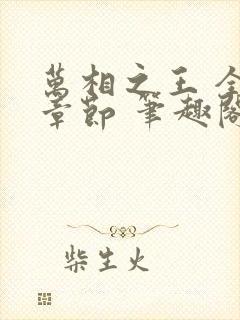 萬相之王
章節 筆趣
柴生火